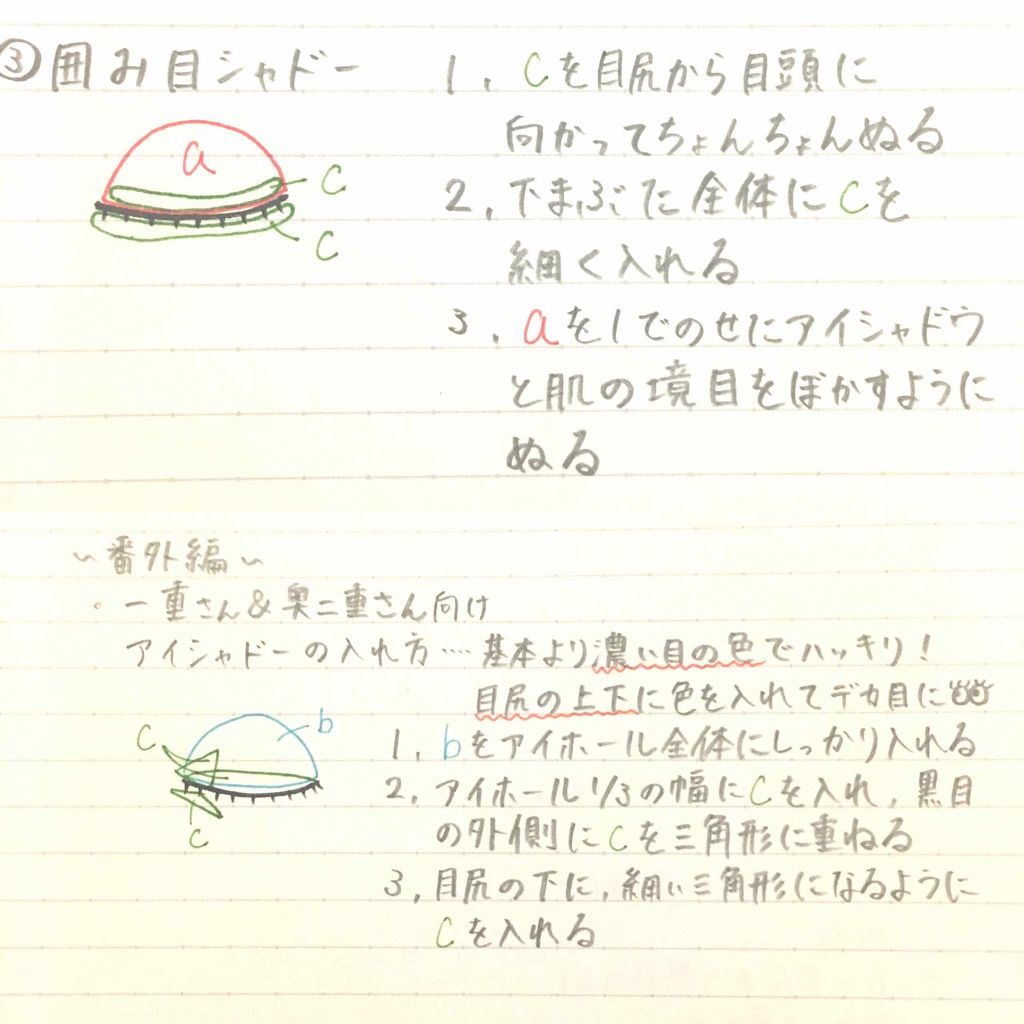 ③囲み目シャドー
a
c
c
1. cを目尻から目頭に
向かってちょんちょんぬる
2. 下まぶた全体にcを
細く入れる
3. aを1でのせにアイシャドウ
と肌の境目をぼかすように
ぬる
~番外編~
・一重さん&奥二重さん向け
アイシャドーの入れ方....基本より濃い目の色でハッキリ!
目尻の上下に色を入れてデカ目に
c
b
c
1. bをアイホール全体にしっかり入れる
2. アイホール1/3の幅にcを入れ、黒目
の外側にcを三角形に重ねる
3, 目尻の下に、細い三角形になるように
cを入れる